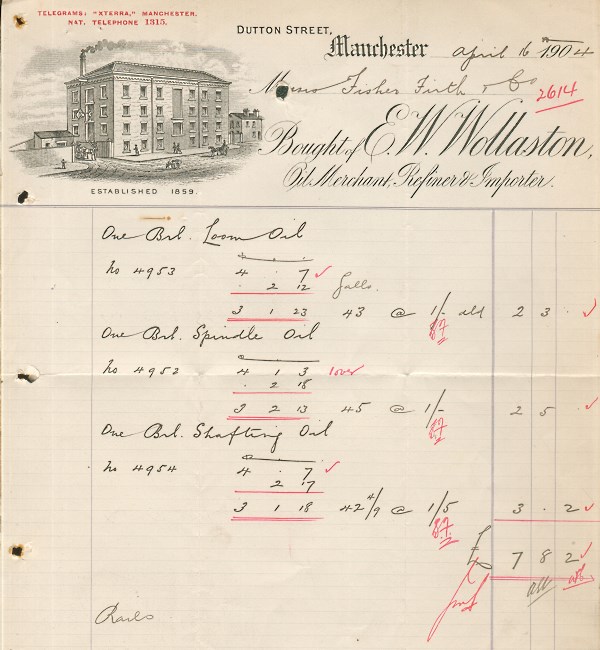 TELEGRAMS; "XTERRA," MANCHESTER.
NAT. TELEPHONE 1315.
DUTTON STREET,
Manchester April 16th 1904
Messrs Fisher Firth & Co
2614
Bought of E. W. Wollaston,
Oil Merchant, Refiner & Importer.
ESTABLISHED 1859.
One Brl. Loom Oil
No 4953 4 . 7
. 2 12 Galls.
3 1 23 43 @ 1/- 2 3 .
87
One Brl. Spindle Oil
No 4952 4 1 3
. 2 18
3 2 13 45 @ 1/- 2 5 .
87
One Brl. Shafting Oil
No 4954 4 . 7
2 17
3 1 18 42 4/9 @ 1/5 3 . 2
87
£ 7 8 2
Rails